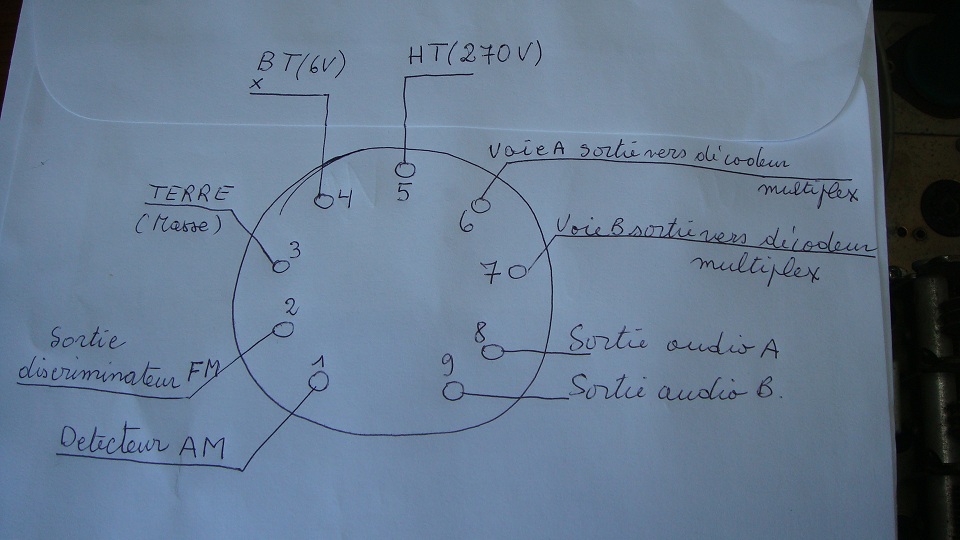 BT(6V)
x
HT(270V)
Voie A sortie vers décodeur
multiplex
TERRE
(Masse)
4
5
6
Voie B sortie vers décodeur
multiplex
3
7
2
Sortie
discriminateur FM
8
Sortie audio A
1
9
Sortie audio B.
Detecteur AM